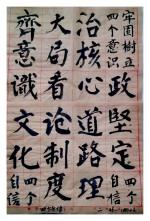 牢固樹立
四个意识
政堅定
四个
自信
治核心道路理
大局看論制度
齊意識文化
四个
自信